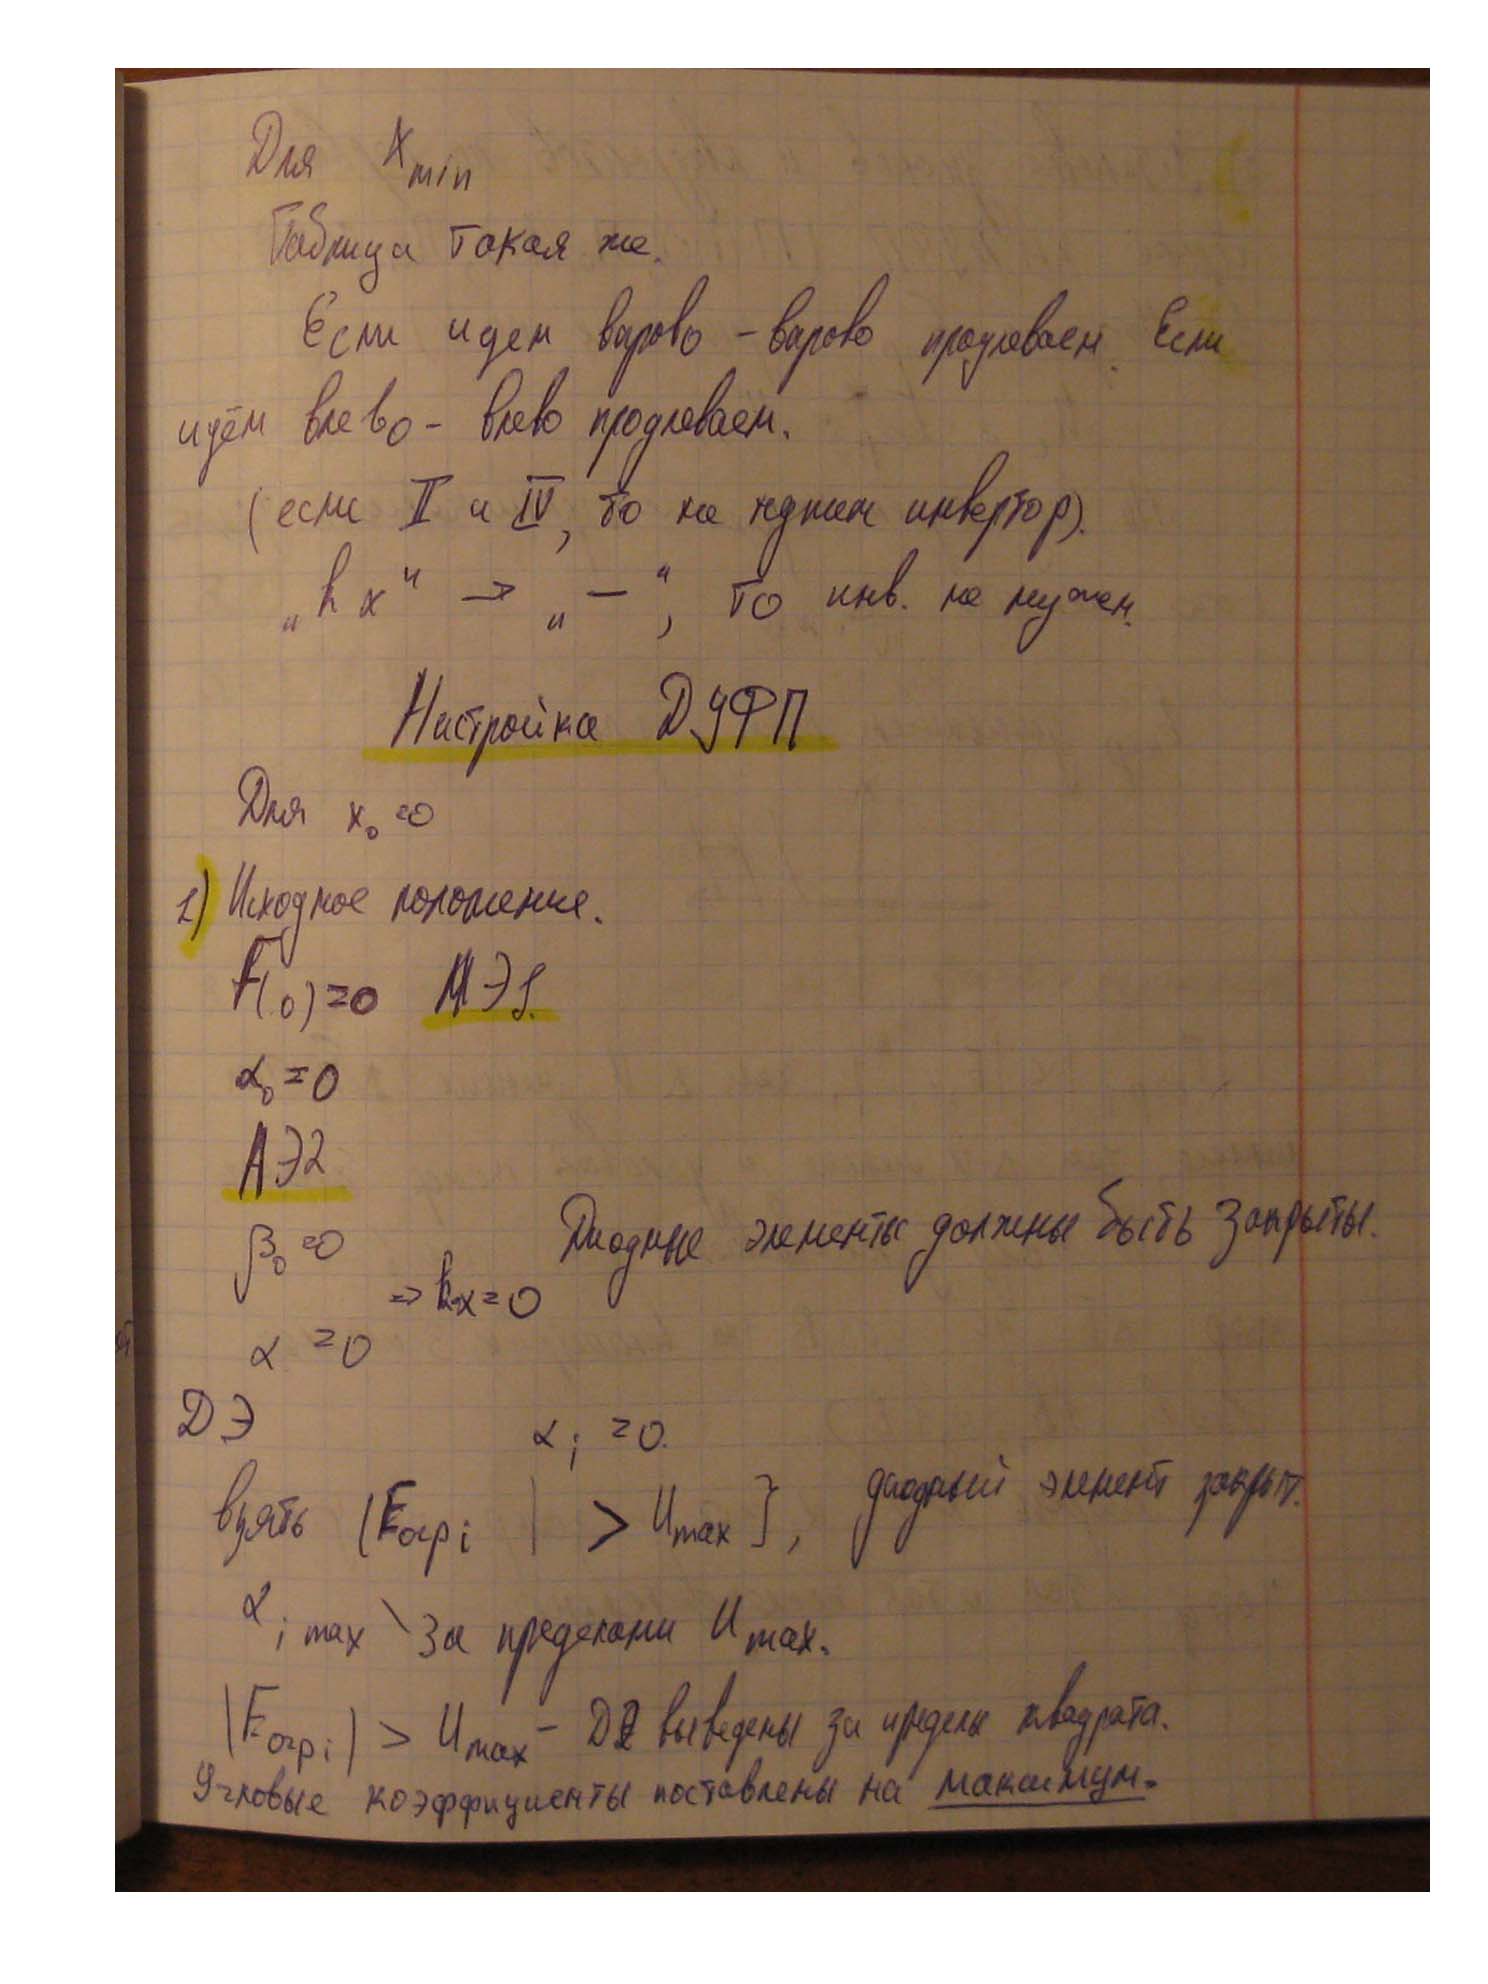 Для Xmin
Таблица такая же.
Если идем вправо – вправо продлеваем. Если
идём влево – влево продлеваем.
(если II и IV, то не нужен инвертор).
„kx" → „–", то инв. не нужен.
Настройка ДУФП
Для x₀=0
1) Исходное положение.
F(0)=0 АЭ1.
α₀=0
АЭ2
β₀=0 Диодные элементы должны быть закрыты.
⇒ kx=0
α =0
ДЭ αi =0.
взять |Eогрi | > Umax }, диодный элемент закрыт.
αi max \ за пределами Umax.
|Eогрi| > Umax – ДЭ выведены за пределы квадрата.
Угловые коэффициенты поставлены на максимум.